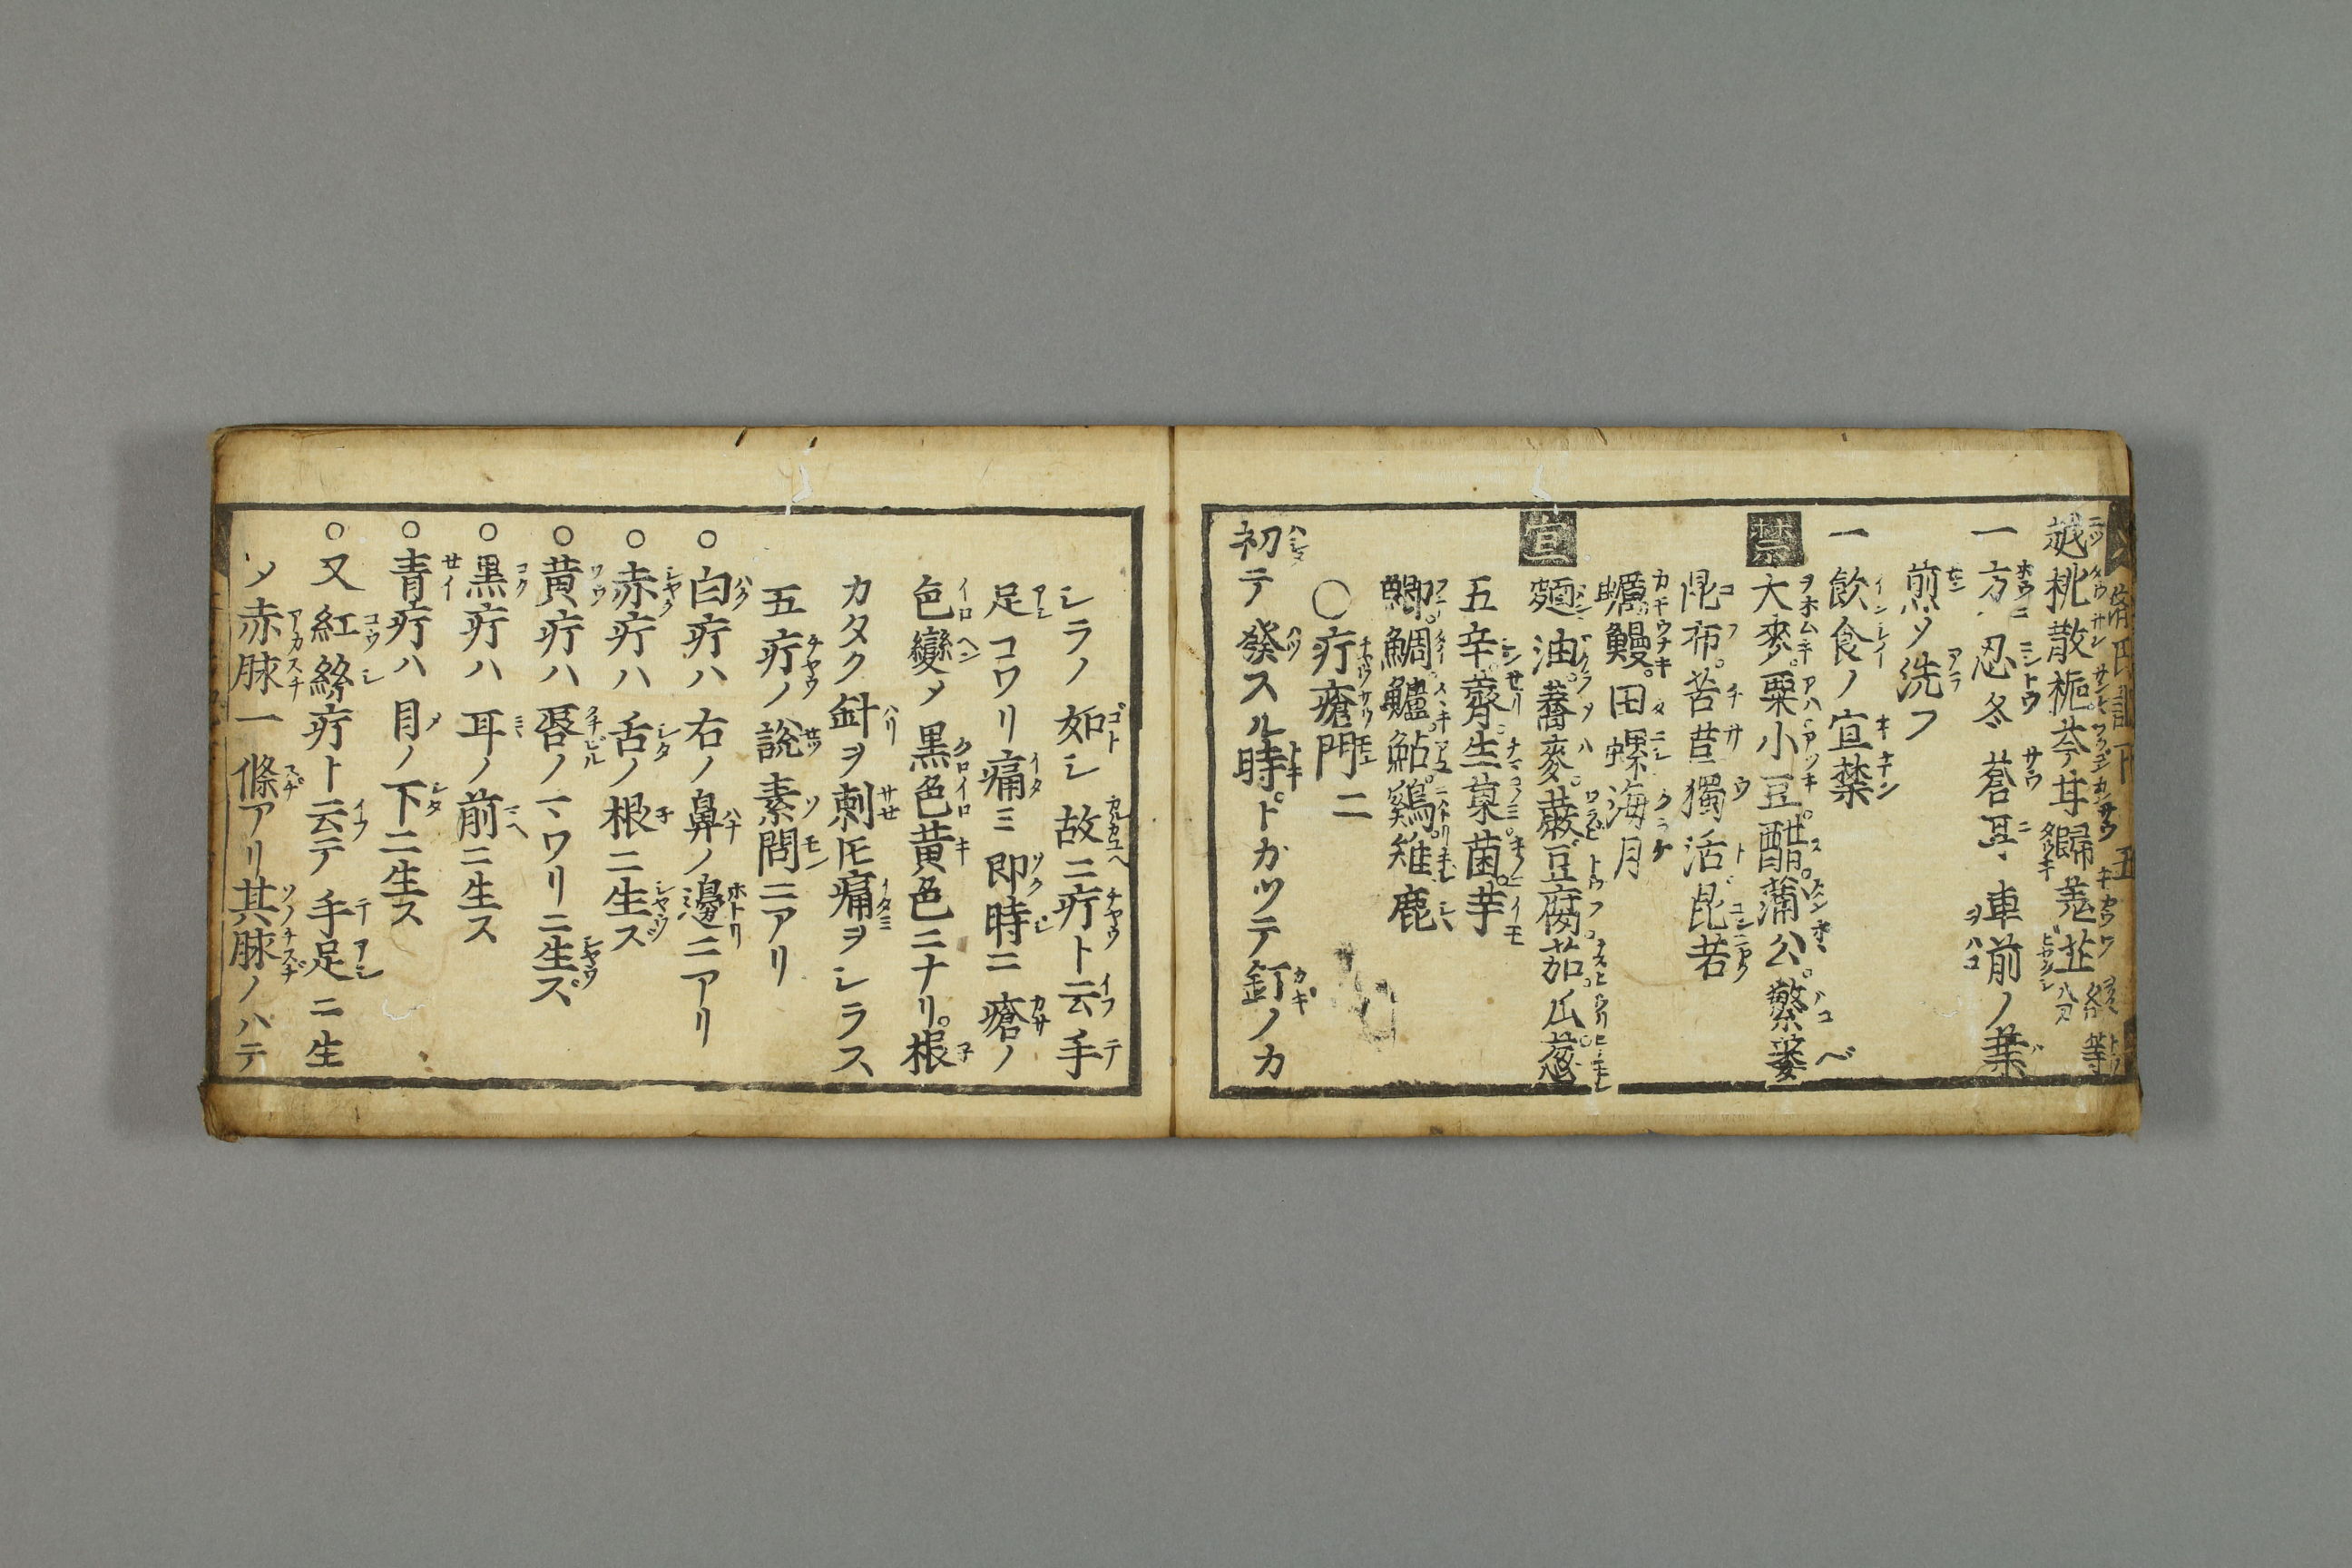 越桃散梔芩甘歸羗
一方忍冬蒼耳車前ノ葉
煎ノ洗フ
一飲食ノ宜禁
禁 大麥。粟小豆。醋。蒲公。蘩蔞
昆布。苦苣獨活昆若
蠣鰻。田螺海月
宜 麺油。蕎麥。蕨豆腐。茄。瓜葱
五辛。薺生菓菌。芋
鯽鯛。鱸鮎。鷄雉鹿
○疔瘡門二
初テ發スル時。トガツテ釘ノカ
シラノ如シ故ニ疔ト云手
足コワリ痛ミ即時ニ瘡ノ
色變メ黒色黄色ニナリ。根
カタク針ヲ刺𪜈痛ヲシラス
五疔ノ説素問ニアリ
○白疔ハ右ノ鼻ノ邊ニアリ
○赤疔ハ舌ノ根ニ生ス
○黄疔ハ唇ノマワリニ生ス。
○黒疔ハ耳ノ前ニ生ス
○青疔ハ目ノ下ニ生ス
○又紅絲疔ト云テ手足ニ生
ソ赤脉一條アリ其脉ノハテ